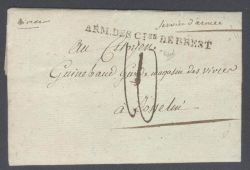 service d'armée
ARM. DES C.tes DE BREST
Au Citoyen
Guinebaud Garde magasin des vivres
à Josselin